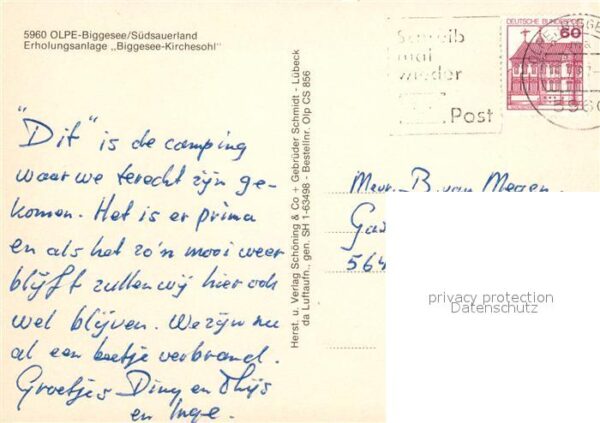 5960 OLPE-Biggesee/Südsauerland
Erholungsanlage „Biggesee-Kirchesohl"
"Dit" is de camping
waar we terecht zijn ge-
komen. Het is er prima
en als het zo'n mooi weer
blijft zullen wij hier ook
wel blijven. We zijn nu
al een beetje verbrand.
Groetjes Diny en Thijs
en Inge.
Herst. u. Verlag Schöning & Co + Gebrüder Schmidt - Lübeck
da Luftaufn., gen. SH 1-63498 - Bestellnr. Olp CS 856
Schreib
mal
wieder
Post
DEUTSCHE BUNDESPOST
60
OLPE, BIGGE
596
Mevr. B. van Megen
564
privacy protection
Datenschutz